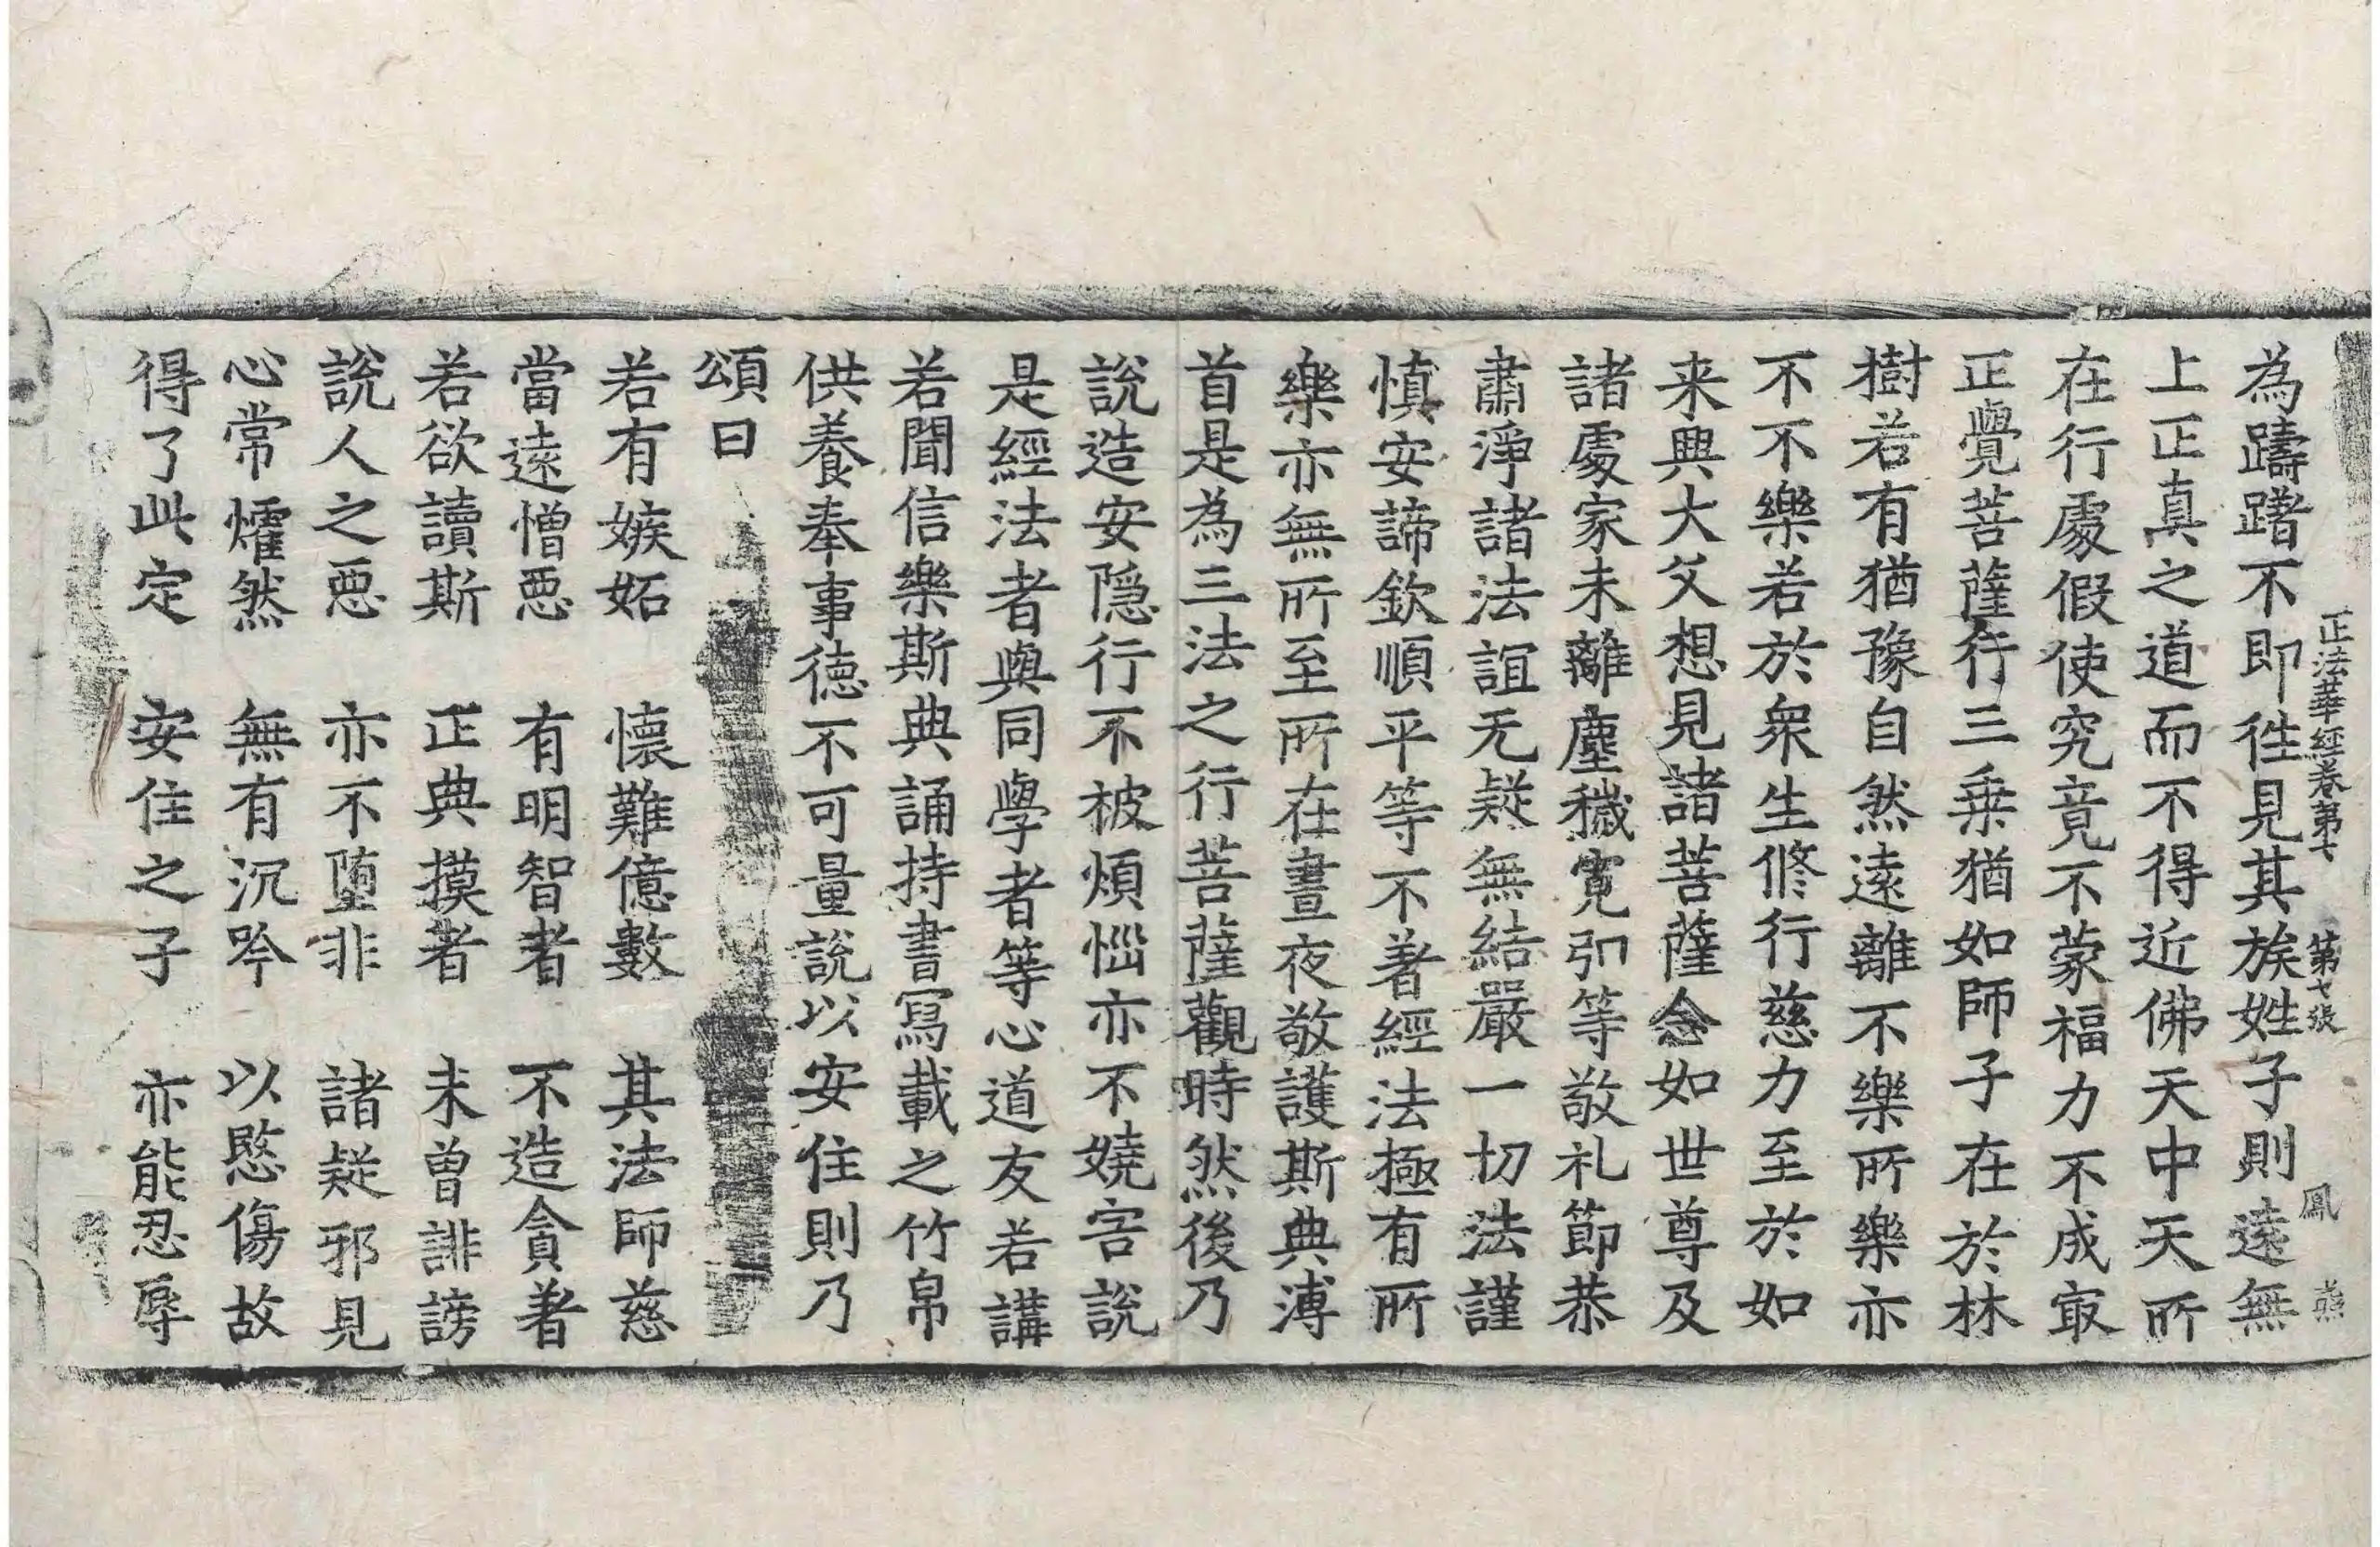 正法華經卷第七 第七張 鳳
為躊躇不即徃見其族姓子則遠無
上正真之道而不得近佛天中天所
在行處假使究竟不蒙福力不成㝡
正覺菩薩行三乗猶如師子在於林
樹若有猶豫自然遠離不樂所樂亦
不不樂若於衆生修行慈力至於如
来興大父想見諸菩薩念如世尊及
諸處家未離塵穢寛引等敬礼節恭
肅淨諸法誼无疑無結嚴一切法謹
慎安諦欽順平等不著經法極有所
樂亦無所至所在晝夜敬護斯典溥
首是為三法之行菩薩觀時然後乃
說造安隠行不被煩惱亦不嬈害說
是經法者與同學者等心道友若講
若聞信樂斯典誦持書寫載之竹帛
供養奉事德不可量說以安住則乃
頌曰
若有嫉妬 懷難億數 其法師慈
當遠憎惡 有明智者 不造貪著
若欲讀斯 正典摸者 未曾誹謗
說人之惡 亦不墮非 諸疑邪見
心常燿然 無有沉吟 以愍傷故
得了此定 安住之子 亦能忍辱